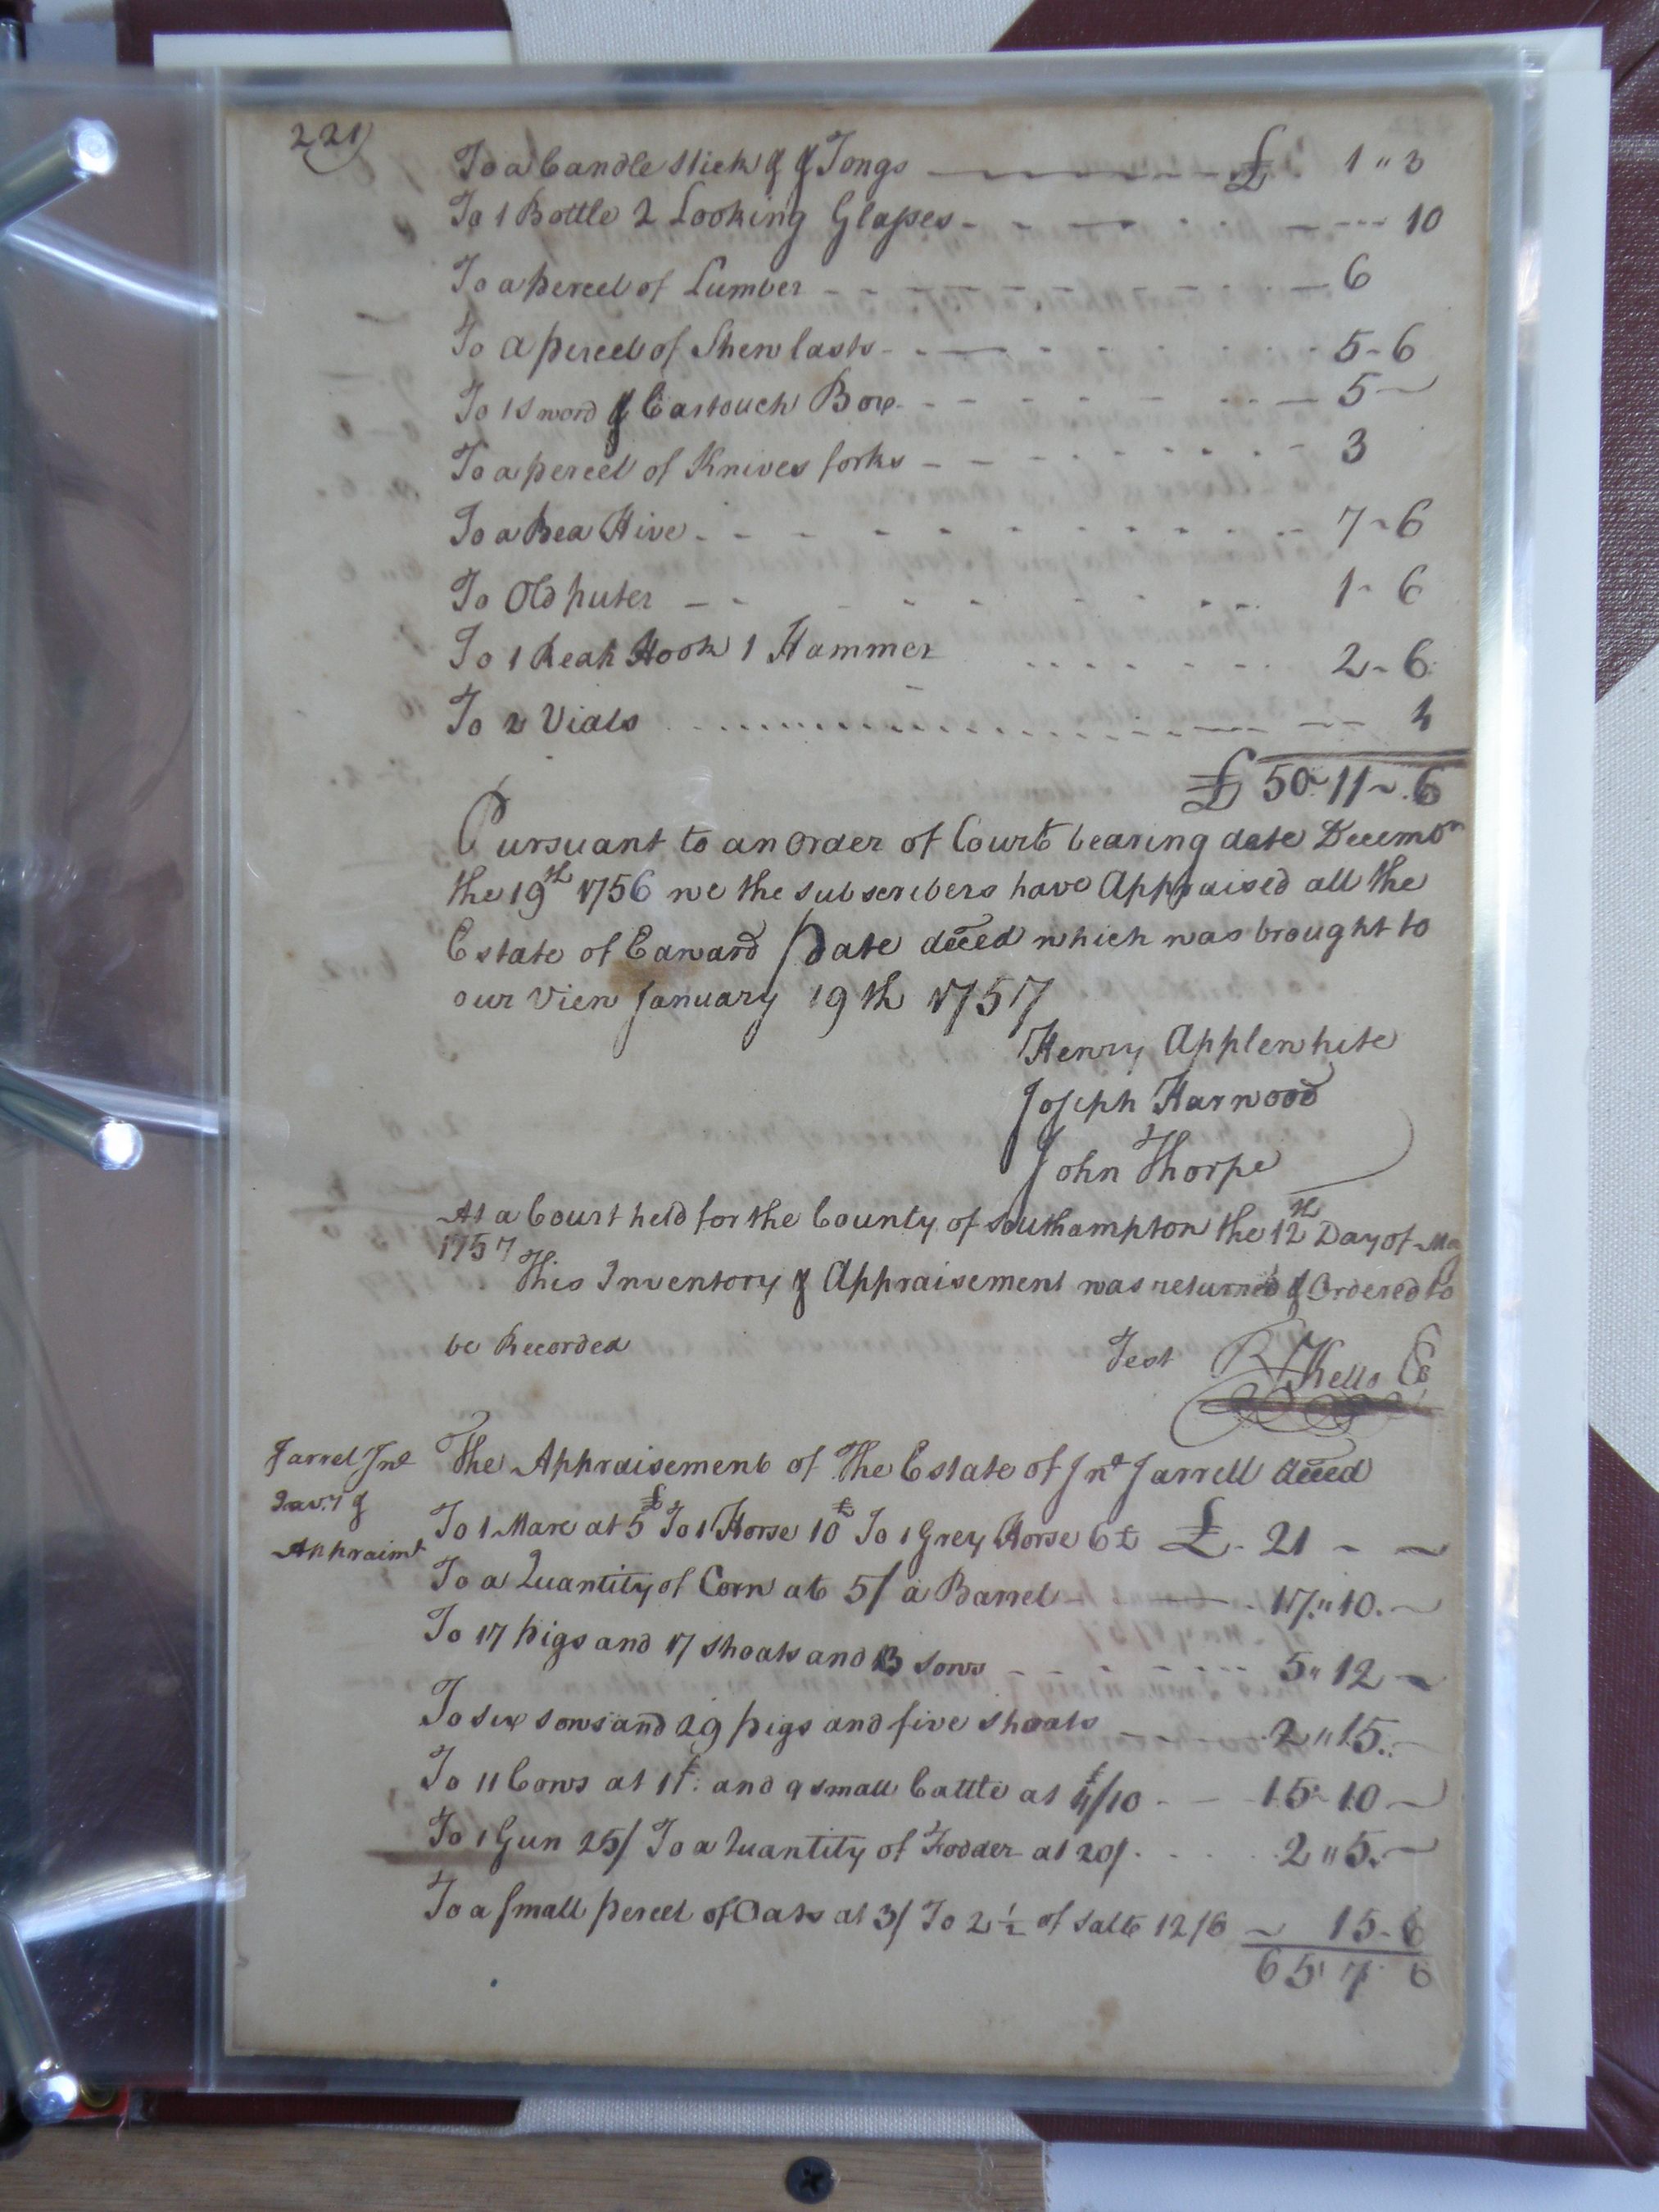 221
To a Candle stick & & Tongs £ 1 " 3
To 1 Bottle 2 Looking Glasses 10
To a percel of Lumber 6
To a percel of Shew lasts 5 - 6
To 1 Sword & Cartouch Box 5
To a percel of Knives forks 3
To a Bea Hive 7 - 6
To Old puter 1 - 6
To 1 Reap Hook 1 Hammer 2 - 6
To 2 Vials 4
£ 50 - 11 - 6
Pursuant to an Order of Court bearing date Decemb^r
the 19th 1756 we the subscribers have Appraised all the
Estate of Edward Pate deced which was brought to
our View January 19th 1757
Henry Applewhite
Joseph Harwood
John Thorpe
At a Court held for the County of Southampton the 12th Day of May
1757
This Inventory & Appraisement was returned & Ordered to
be Recorded
Test R Kello Cl
Jarrel Jno
Inv.ry &
Appraimt
The Appraisement of The Estate of Jno Jarrell deced
To 1 Mare at 5£ To 1 Horse 10£ To 1 Grey Horse 6£ £ - 21 - -
To a Quantity of Corn at 5/ a Barrel 17 " 10 -
To 17 pigs and 17 shoats and 13 sows 5 " 12 -
To six sows and 29 pigs and five shoats 2 " 15 -
To 11 Cows at 11£ and 9 small Cattle at £4/10 15 - 10 -
To 1 Gun 25/ To a Quantity of Fodder at 20/ 2 " 5 -
To a small percel of Oats at 3/ To 2 ½ of Salt 12/6 15 - 6
65 7 6